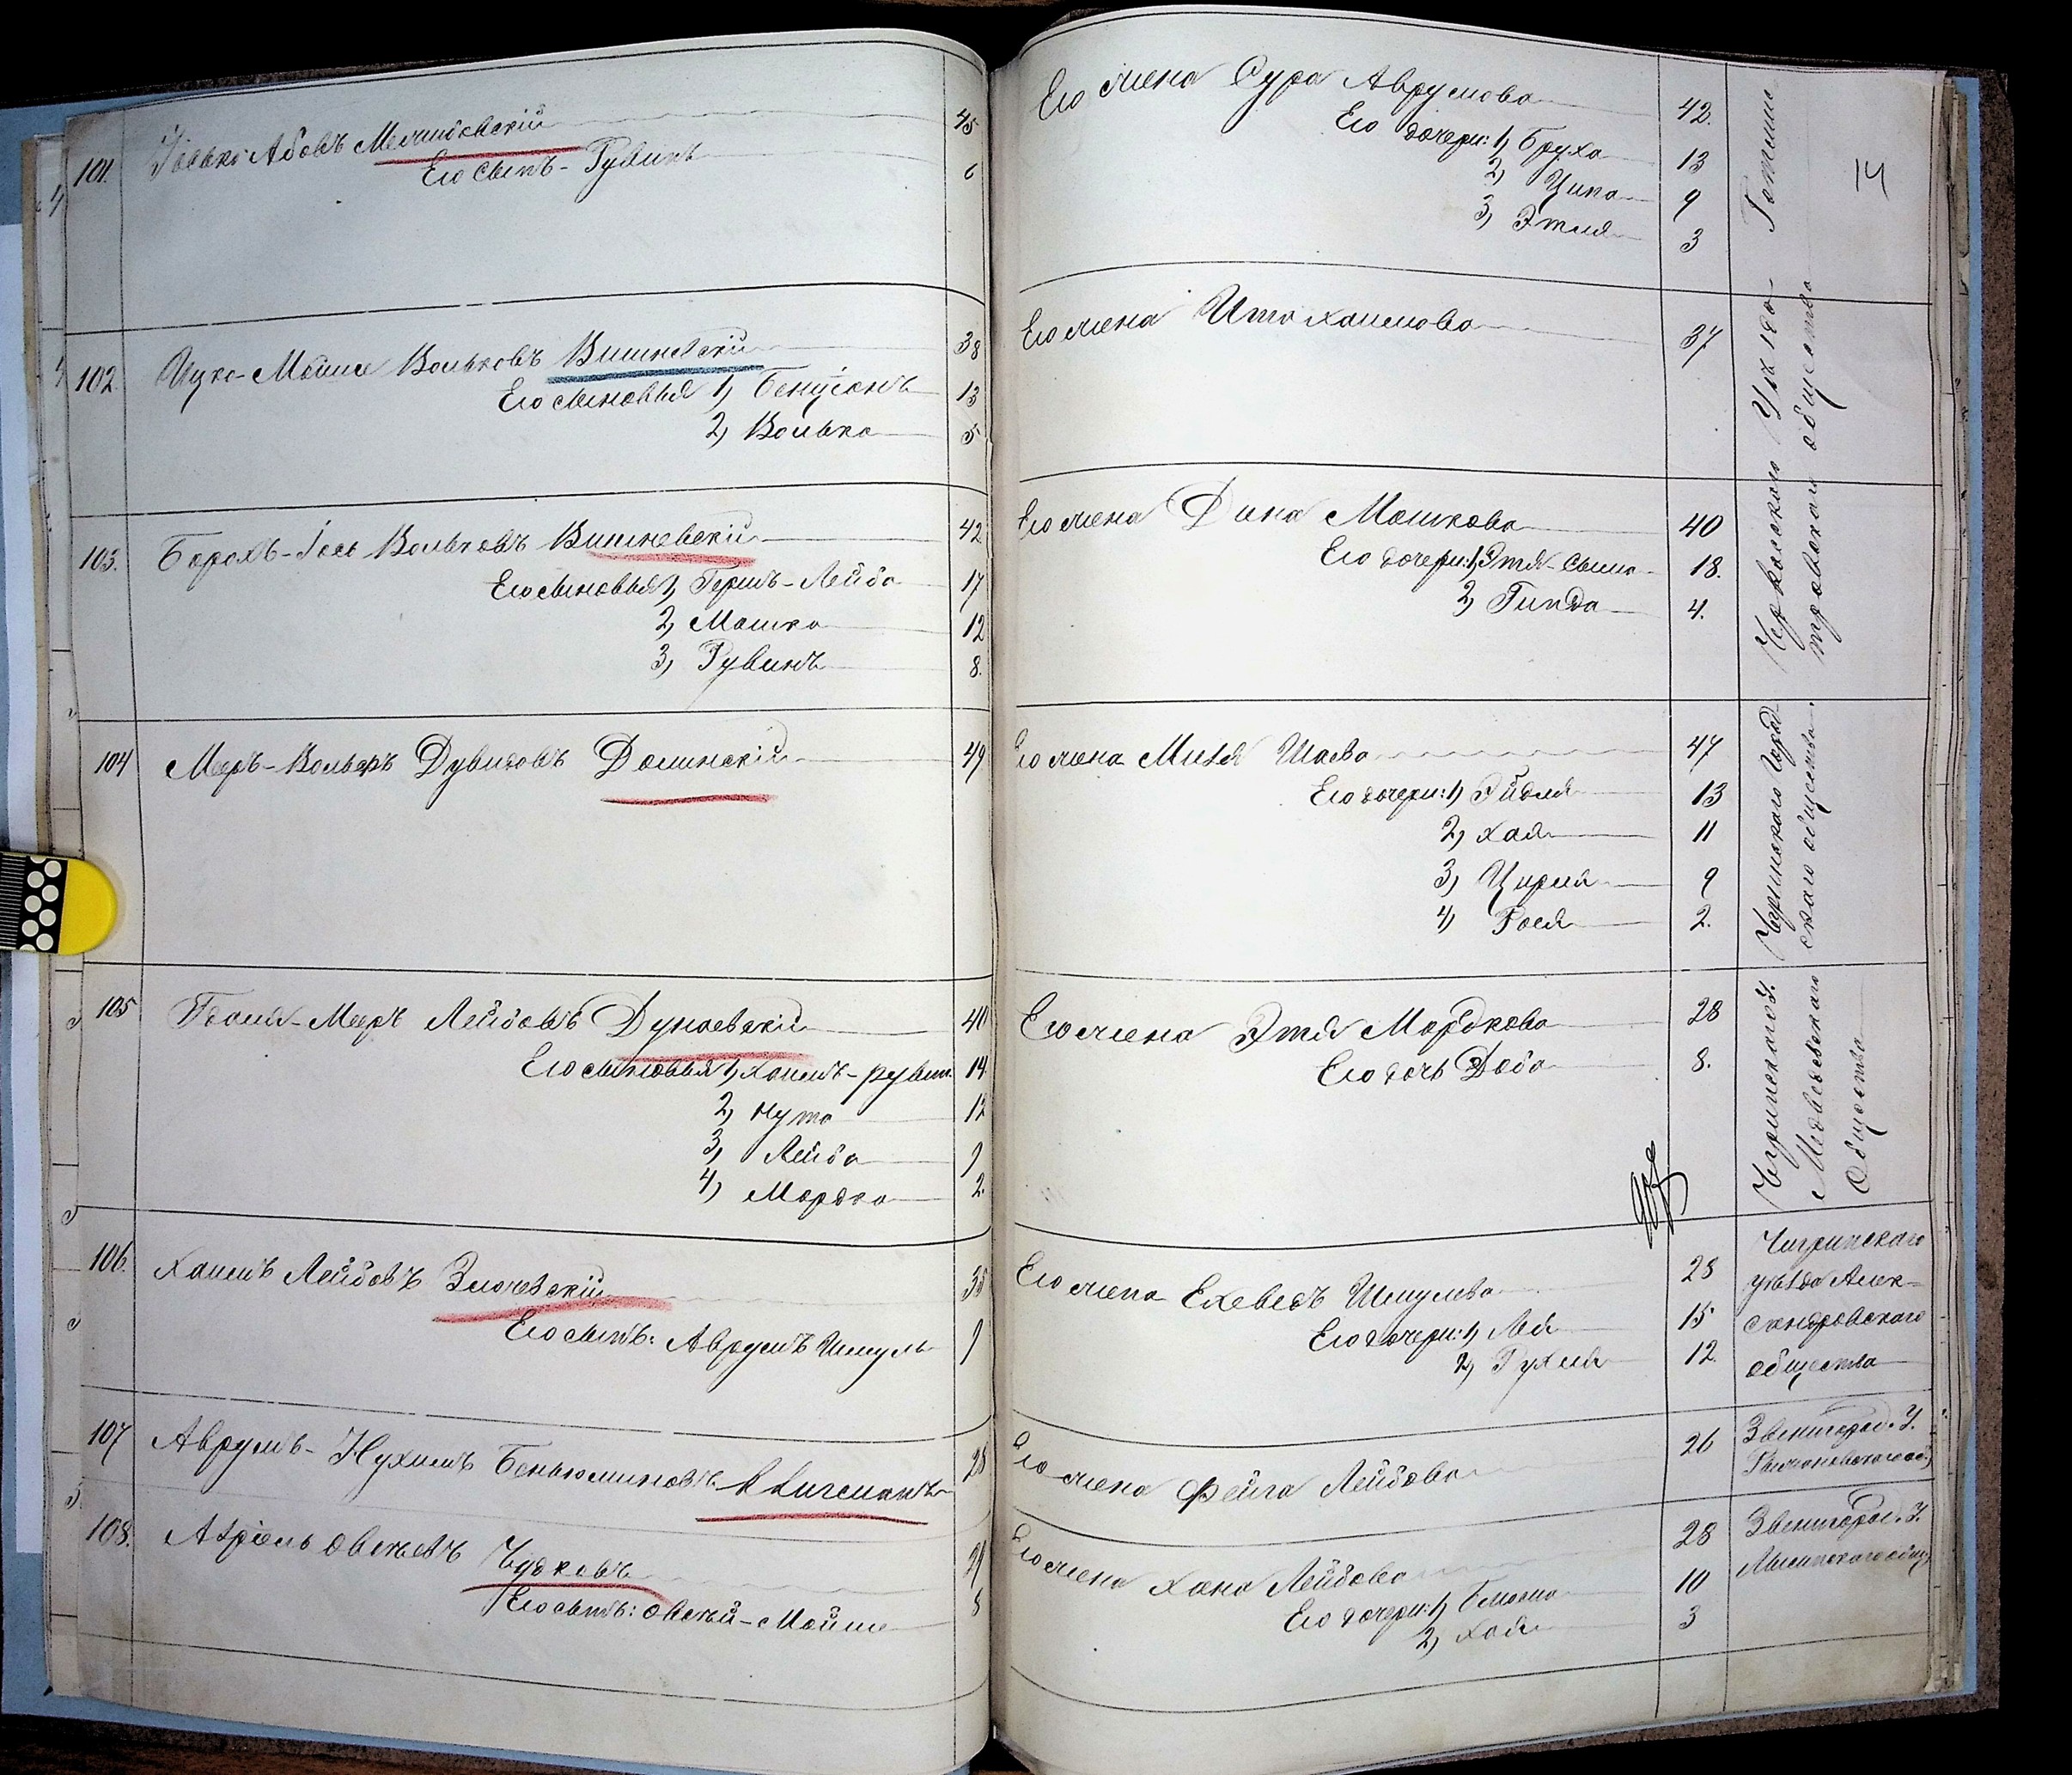 101. Абовъ 45
Его Сынъ - Рувинъ 6
102. Ицко-Мойше Вольковъ Вишневскій 38
Его сыновья 1) Бенціонъ 13
2) Волько 5
103. Борохъ-Іось Вольковъ Вишневскій 42
Его сыновья 1) Гершъ-Лейба 17
2) Мошко 12
3) Рувинъ 8.
104 Меръ-Вольфъ Дувидовъ Долинскій 49
105 Меръ Лейбовъ Дунаевскій 40
Его сыновья 1) Хаимъ-рувин. 14
2) Нута 12
3) Лейба 9
4) Мордко 2.
106. Хаимъ Лейбовъ Злочевскій 35
Его сынъ: Аврумъ Шмуль 9
107 Аврумъ-Нухимъ Беньюминовъ 28
108. Овсеевъ Чудковъ 29
Его сынъ: Овсей-Мойше 8
14
Его жена Сура Аврумова 42.
Его дочери: 1) Бруха 13
2) Ципа 9
3) Этля 3
Его жена Ита Хаимова 37
Его жена Дина Мошкова 40
Его дочери: 1) Этя-Сима 18.
2) Гинда 4.
Черкасского Уѣзда
общества
Его жена Шаева 47
Его дочери: 1) Эйдля 13
2) Хая 11
3) Цирля 9
4) Рося 2.
Чигринскаго Город-
скаго общества.
Его жена Этя Мордкова 28
Его дочь Доба 8.
Чигринскаго У.
Медведовскаго
Общества
Его жена Ехеведъ Шмулева 28
Его дочери: 1) Лея 15
2) Рухля 12.
Чигринскаго
уѣзда Алек-
сандровскаго
общества
Его жена Фейга Лейбова 26
Звенигород. У.
Его жена Хана Лейбова 28
Его дочери: 1) Блюма 10
2) Хая 3
Звенигород. У.
Лысянскаго общ.